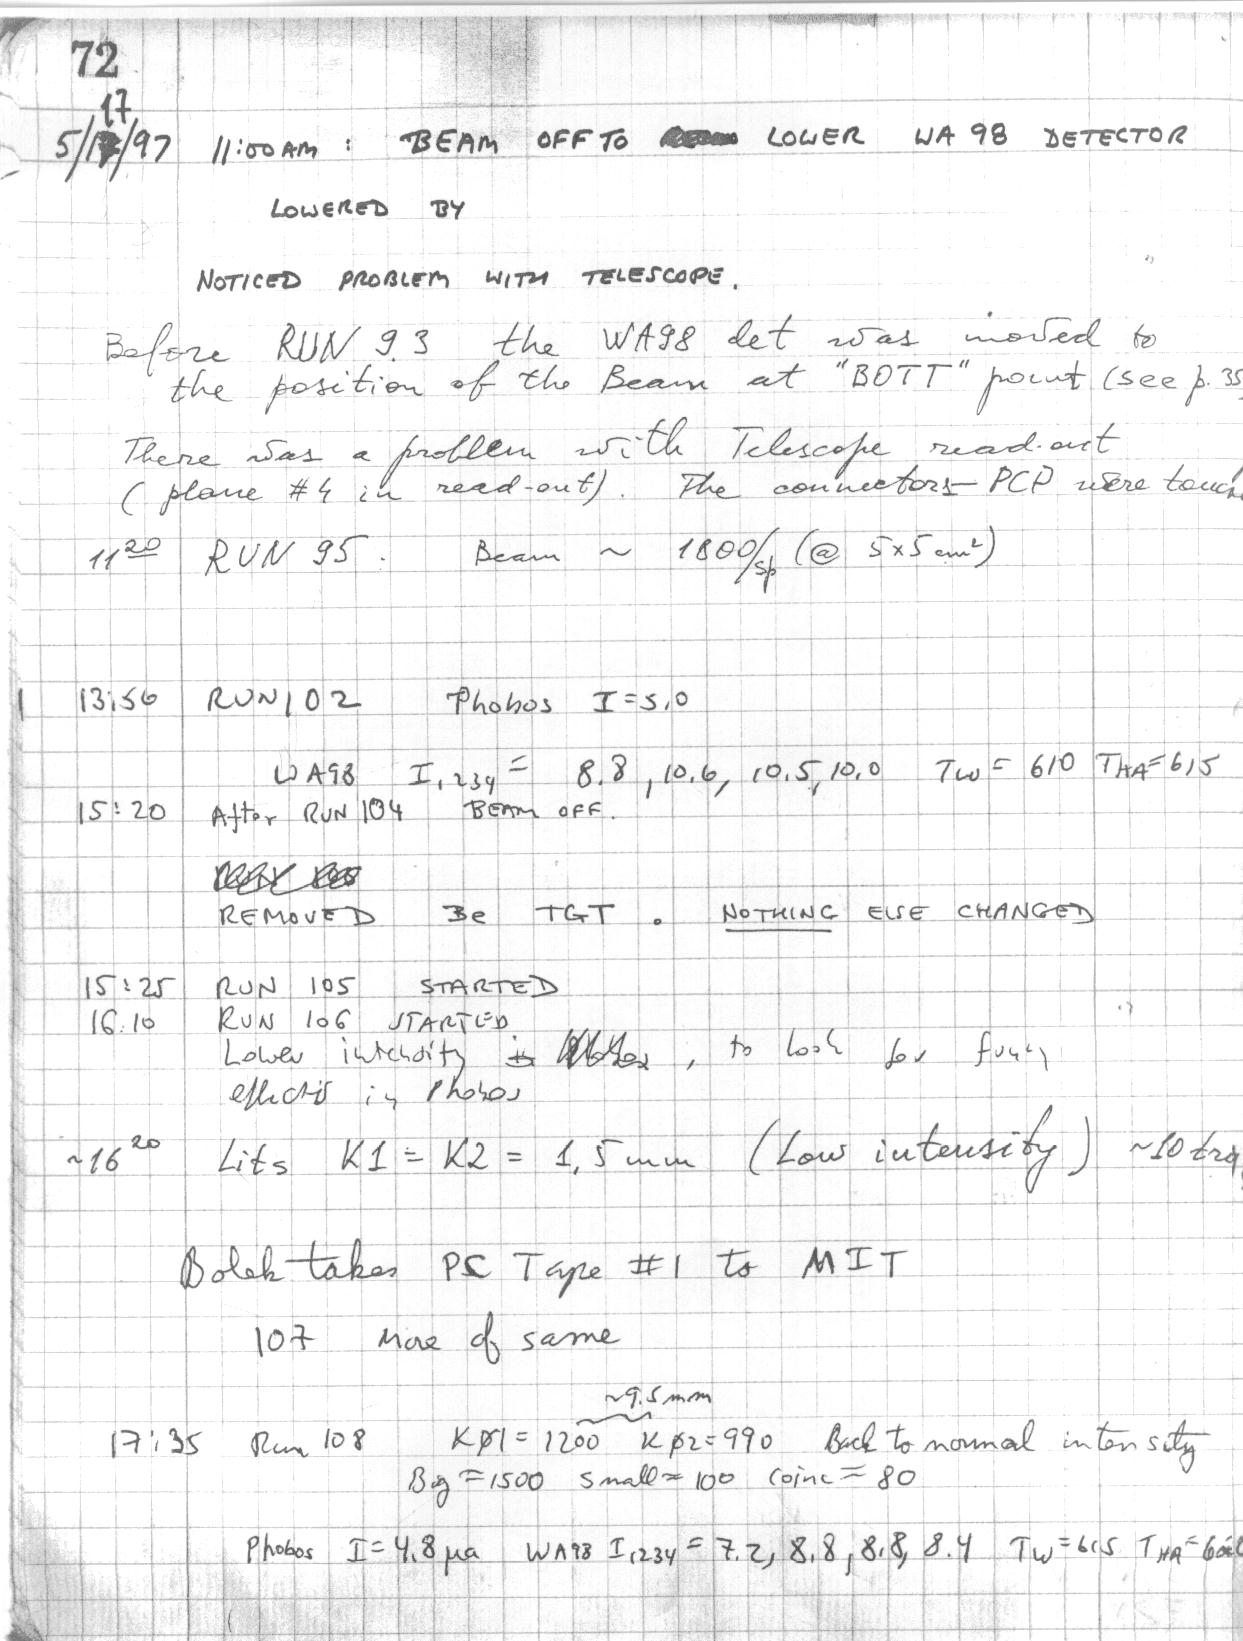 72
17
5/17/97 11:00 AM : BEAM OFF TO LOWER WA 98 DETECTOR
LOWERED BY
NOTICED PROBLEM WITH TELESCOPE.
Before RUN 93 the WA98 det was moved to
the position of the Beam at "BOTT" point (see p. 35
There was a problem with Telescope read-out
(plane #4 in read-out). The connectors - PCP were
11 20 RUN 95. Beam ~ 1800/sp (@ 5x5 cm²)
13:56 RUN 102 Phobos I = 5.0
WA98 I1,234 = 8.8, 10.6, 10.5, 10.0 TW = 610 THA = 615
15:20 After RUN 104 BEAM OFF.
REMOVED Be TGT. NOTHING ELSE CHANGED
15:25 RUN 105 STARTED
16.10 RUN 106 STARTED
Lower intensity, to look for funny
effects in Phobos
~16 20 K1 = K2 = 1,5 mm (Low intensity) ~10
Bolek takes PC Tape #1 to MIT
107 More of same
~9.5 mm
17:35 Run 108 KØ1 = 1200 KØ2 = 990 Back to normal intensity
Big = 1500 small = 100 coinc = 80
Phobos I = 4.8 µa WA98 I1,234 = 7.2, 8.8, 8.8, 8.4 TW = 615 THA =